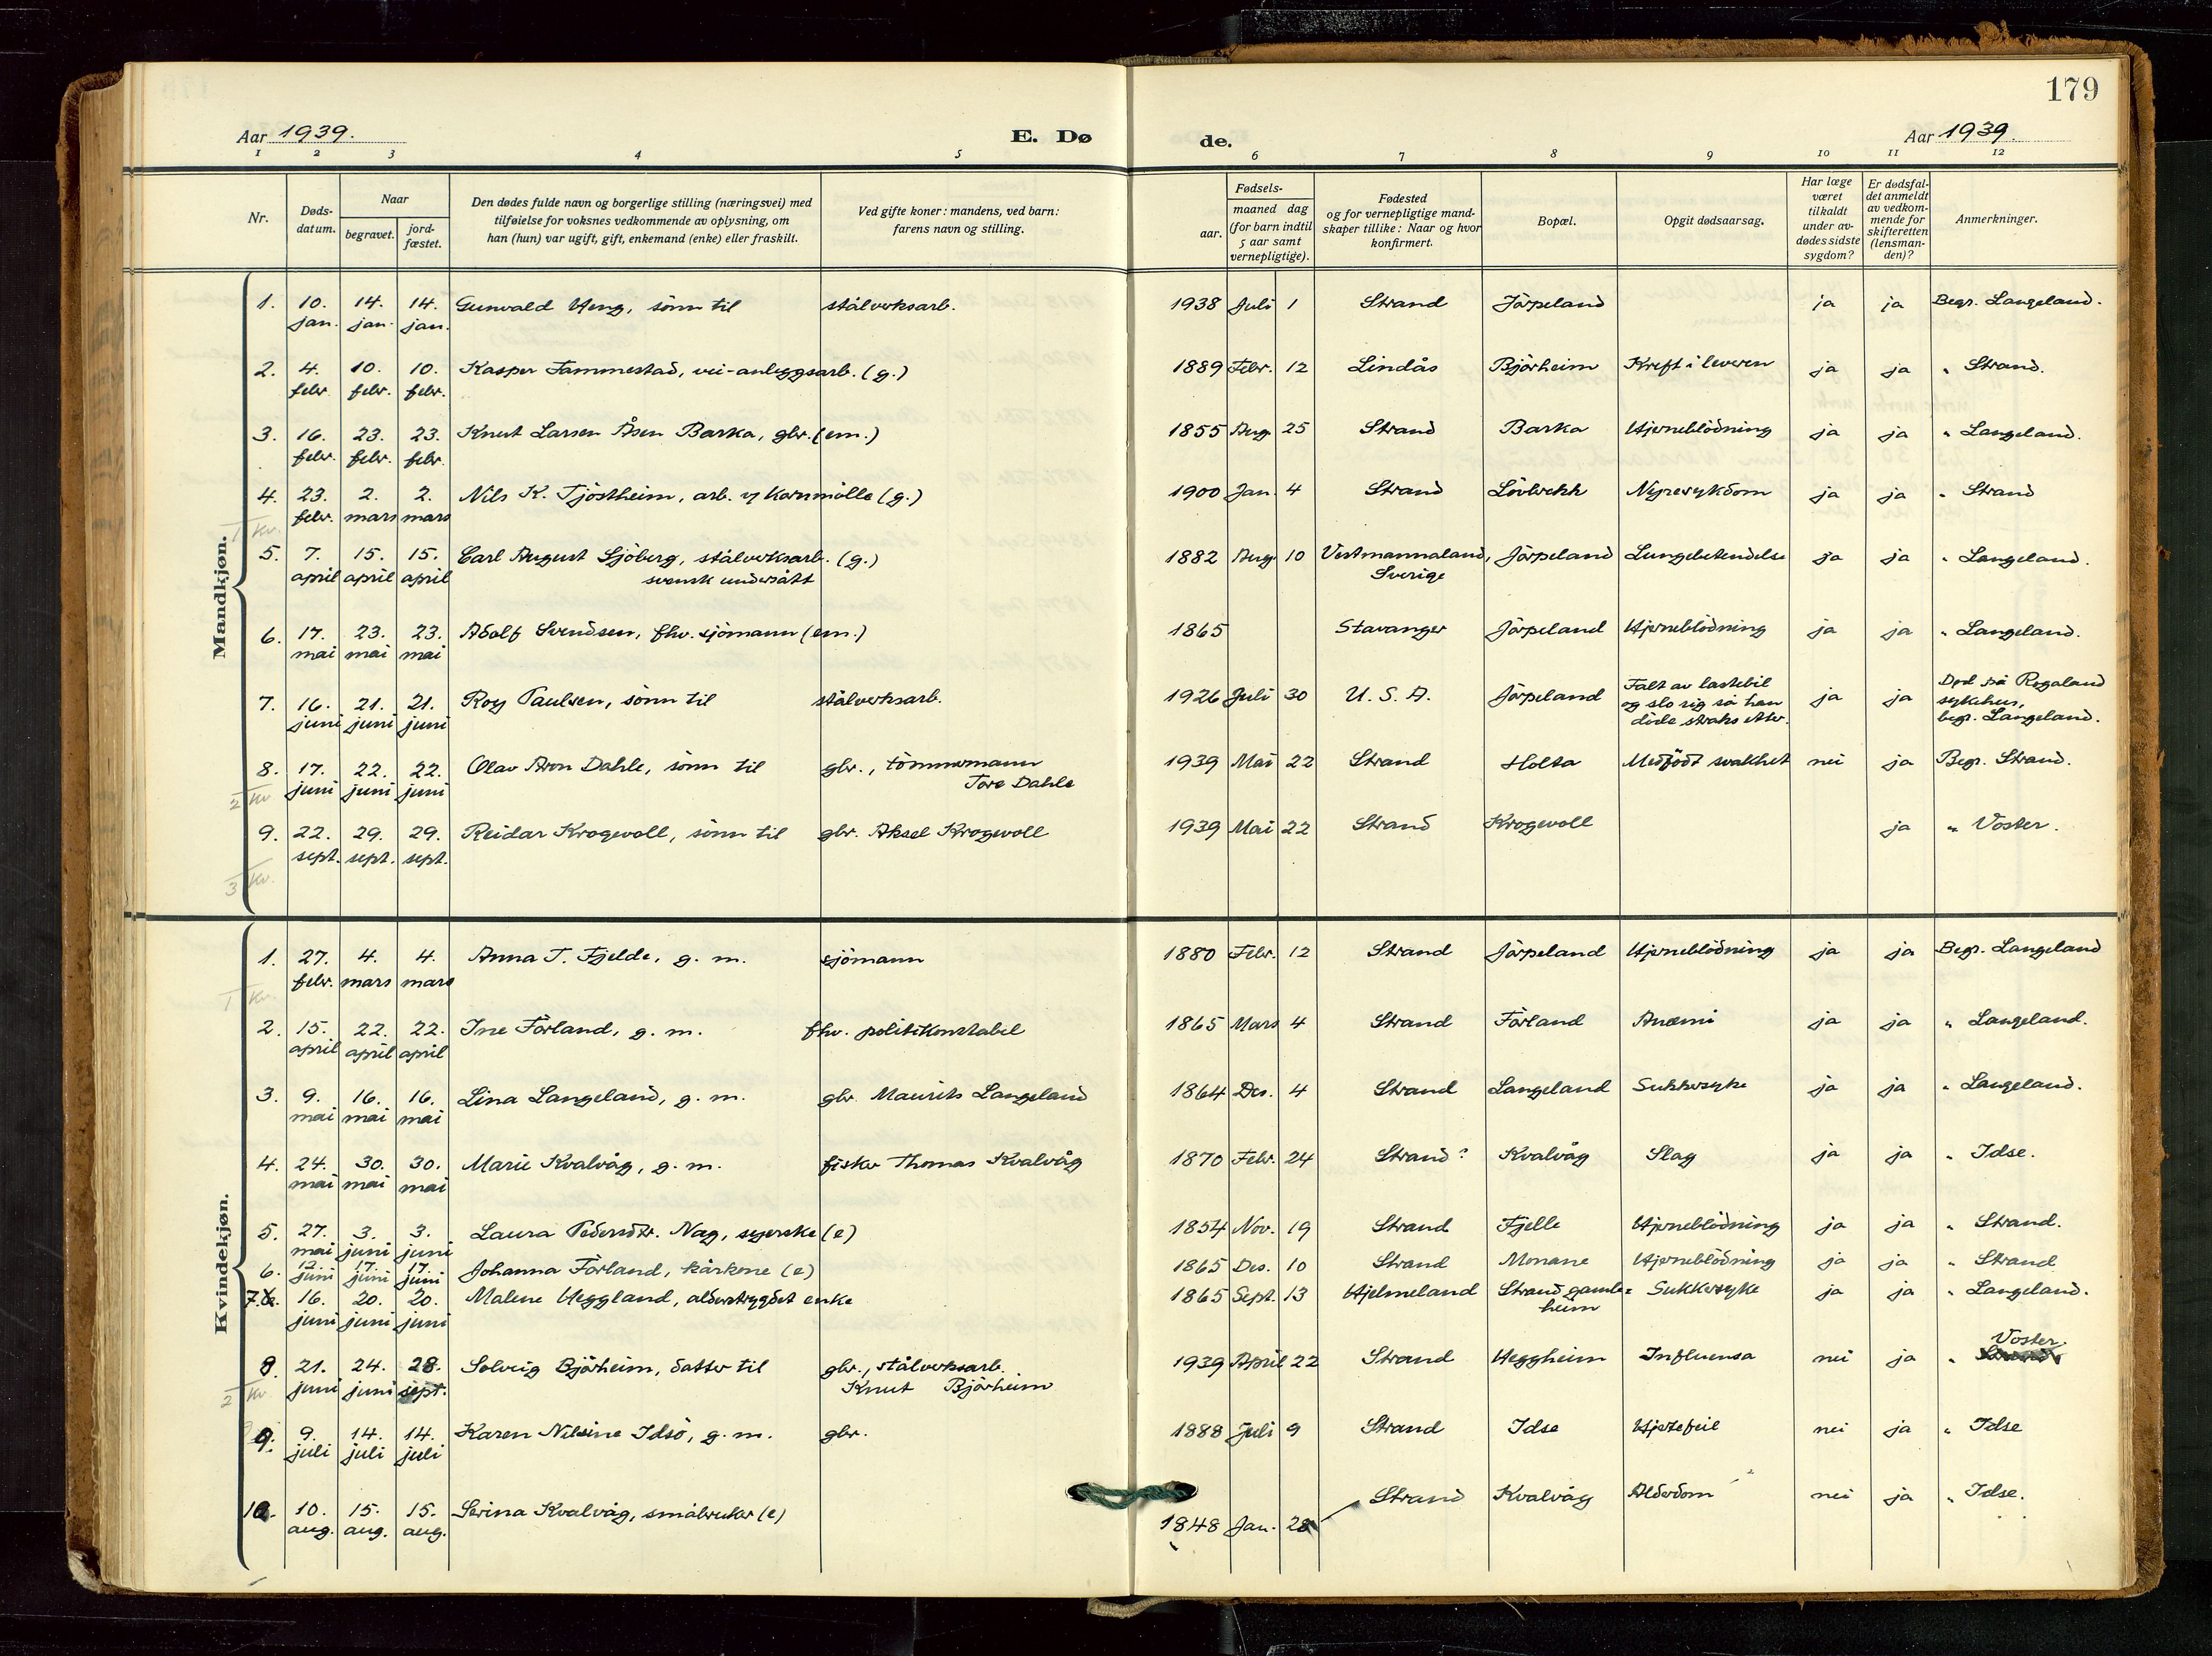 179
Aar 1939.
E. Dø
de.
Aar 1939.
1 2 3 4 5 6 7 8 9 10 11 12
Nr.
Døds-
datum.
Naar
begravet.
jord-
fæstet.
Den dødes fulde navn og borgerlige stilling (næringsvei) med
tilføielse for voksnes vedkommende av oplysning, om
han (hun) var ugift, gift, enkemand (enke) eller fraskilt.
Ved gifte koner: mandens, ved barn:
farens navn og stilling.
Fødsels-
aar.
maaned dag
(for barn indtil
5 aar samt
vernepligtige).
Fødested
og for vernepligtige mand-
skaper tillike: Naar og hvor
konfirmert.
Bopæl.
Opgit dødsaarsag.
Har læge
været
tilkaldt
under av-
dødes sidste
sygdom?
Er dødsfal-
det anmeldt
av vedkom-
mende for
skifteretten
(lensman-
den)?
Anmerkninger.
Mandkjøn.
1. 10. 14. 14. Gunvald Heng, sönn til stålverksarb. 1938 Juli 1 Strand Jörpeland ja ja Begr. Langeland.
jan. jan. jan.
2. 4. 10. 10. Kasper Tammestad, vei-anleggsarb. (g.) 1889 Febr. 12 Lindås Björheim Kreft i leveren ja ja " Strand.
febr. febr. febr.
3. 16. 23. 23. Knut Larsen Åsen Barka, gbr. (em.) 1855 Aug. 25 Strand Barka Hjerneblödning ja ja " Langeland.
febr. febr. febr.
4. 23. 2. 2. Nils K. Tjöstheim, arb. v/ Kornmölle (g.) 1900 Jan. 4 Strand Lövbrekk Nyresykdom ja ja " Strand
febr. mars mars
1 Kv.
5. 7. 15. 15. Carl August Sjöberg, stålverksarb. (g.) 1882 Aug. 10 Vestmannaland, Jörpeland Lungebetendelse ja ja " Langeland.
april april april svensk undersått Sverige
6. 17. 23. 23. Adolf Svendsen, fhv. sjömann (em.) 1865 Stavanger Jörpeland Hjerneblödning ja ja " Langeland.
mai mai mai
7. 16. 21. 21. Roy Paulsen, sönn til stålverksarb. 1926 Juli 30 U. S. A. Jörpeland Falt av lastebil ja ja Död på Rogaland
juni juni juni og slo sig så han sykehus,
döde straks etter. begr. Langeland.
8. 17. 22. 22. Olav Aron Dahle, sönn til gbr., tömmermann 1939 Mai 22 Strand Holta Medfödt svakhet nei ja Begr. Strand.
juni juni juni Tore Dahle
2 Kv.
9. 22. 29. 29. Reidar Krogevoll, sönn til gbr. Aksel Krogevoll 1939 Mai 22 Strand Krogevoll ja " Voster.
sept. sept. sept.
3 Kv.
Kvindekjøn.
1. 27. 4. 4. Anna T. Fjelde, g. m. sjömann 1880 Febr. 12 Strand Jörpeland Hjerneblödning ja ja Begr. Langeland
febr. mars mars
1 Kv.
2. 15. 22. 22. Ine Förland, g. m. fhv. politikonstabel 1865 Mars 4 Strand Förland Anæmi ja ja " Langeland.
april april april
3. 9. 16. 16. Lina Langeland, g. m. gbr. Maurits Langeland 1864 Des. 4 Strand Langeland Sukkersyke ja ja " Langeland.
mai mai mai
4. 24. 30. 30. Marie Kvalvåg, g. m. fisker Thomas Kvalvåg 1870 Febr. 24 Strand? Kvalvåg Slag ja ja " Idse.
mai mai mai
5. 27. 3. 3. Laura Pedersdtr. Nag, syerske (e) 1854 Nov. 19 Strand Fjelle Hjerneblödning ja ja " Strand.
mai juni juni
6. 12. 17. 17. Johanna Förland, kårkone (e) 1865 Des. 10 Strand Monane Hjerneblödning ja ja " Strand
juni juni juni
7. 16. 20. 20. Malene Heggland, alderstrygdet enke 1865 Sept. 13 Hjelmeland Strand gamle= Sukkersyke ja ja " Langeland.
juni juni juni heim
Voster.
8. 21. 24. 28. Solveig Björheim, datter til gbr., stålverksarb. 1939 April 22 Strand Heggheim Influensa nei ja " Strand
juni juni sept. Knut Björheim
2 Kv.
9. 9. 14. 14. Karen Nilsine Idsö, g. m. gbr. 1888 Juli 9 Strand Idse Hjertefeil nei ja " Idse
juli juli juli
10. 10. 15. 15. Serina Kvalvåg, småbruker (e) 1848 Jan. 28 Strand Kvalvåg Alderdom nei ja " Idse.
aug. aug. aug.